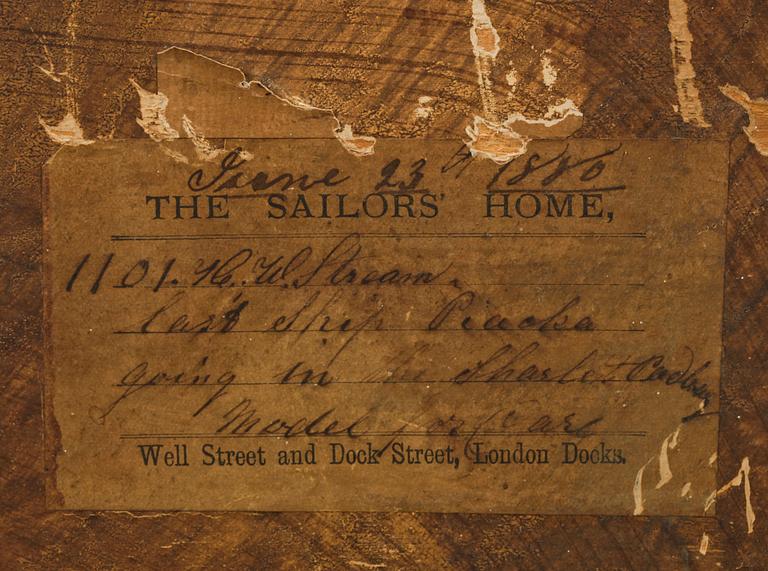 June 23d 1886
THE SAILORS' HOME,
1101. H. W. Stream.
last Ship Piaoka
going in the Charlet Cadbury
Model for Care
Well Street and Dock Street, London Docks.